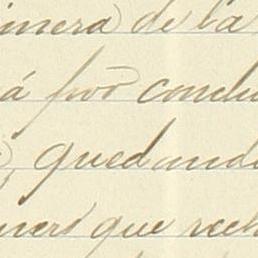 imera de la
á por conclu
quedando
que rech